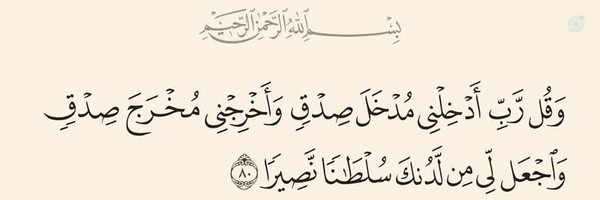 بِسْمِ ٱللَّهِ ٱلرَّحْمَٰنِ ٱلرَّحِيمِ
وَقُل رَّبِّ أَدْخِلْنِى مُدْخَلَ صِدْقٍ وَأَخْرِجْنِى مُخْرَجَ صِدْقٍ
وَٱجْعَل لِّى مِن لَّدُنكَ سُلْطَٰنًا نَّصِيرًا ٨٠